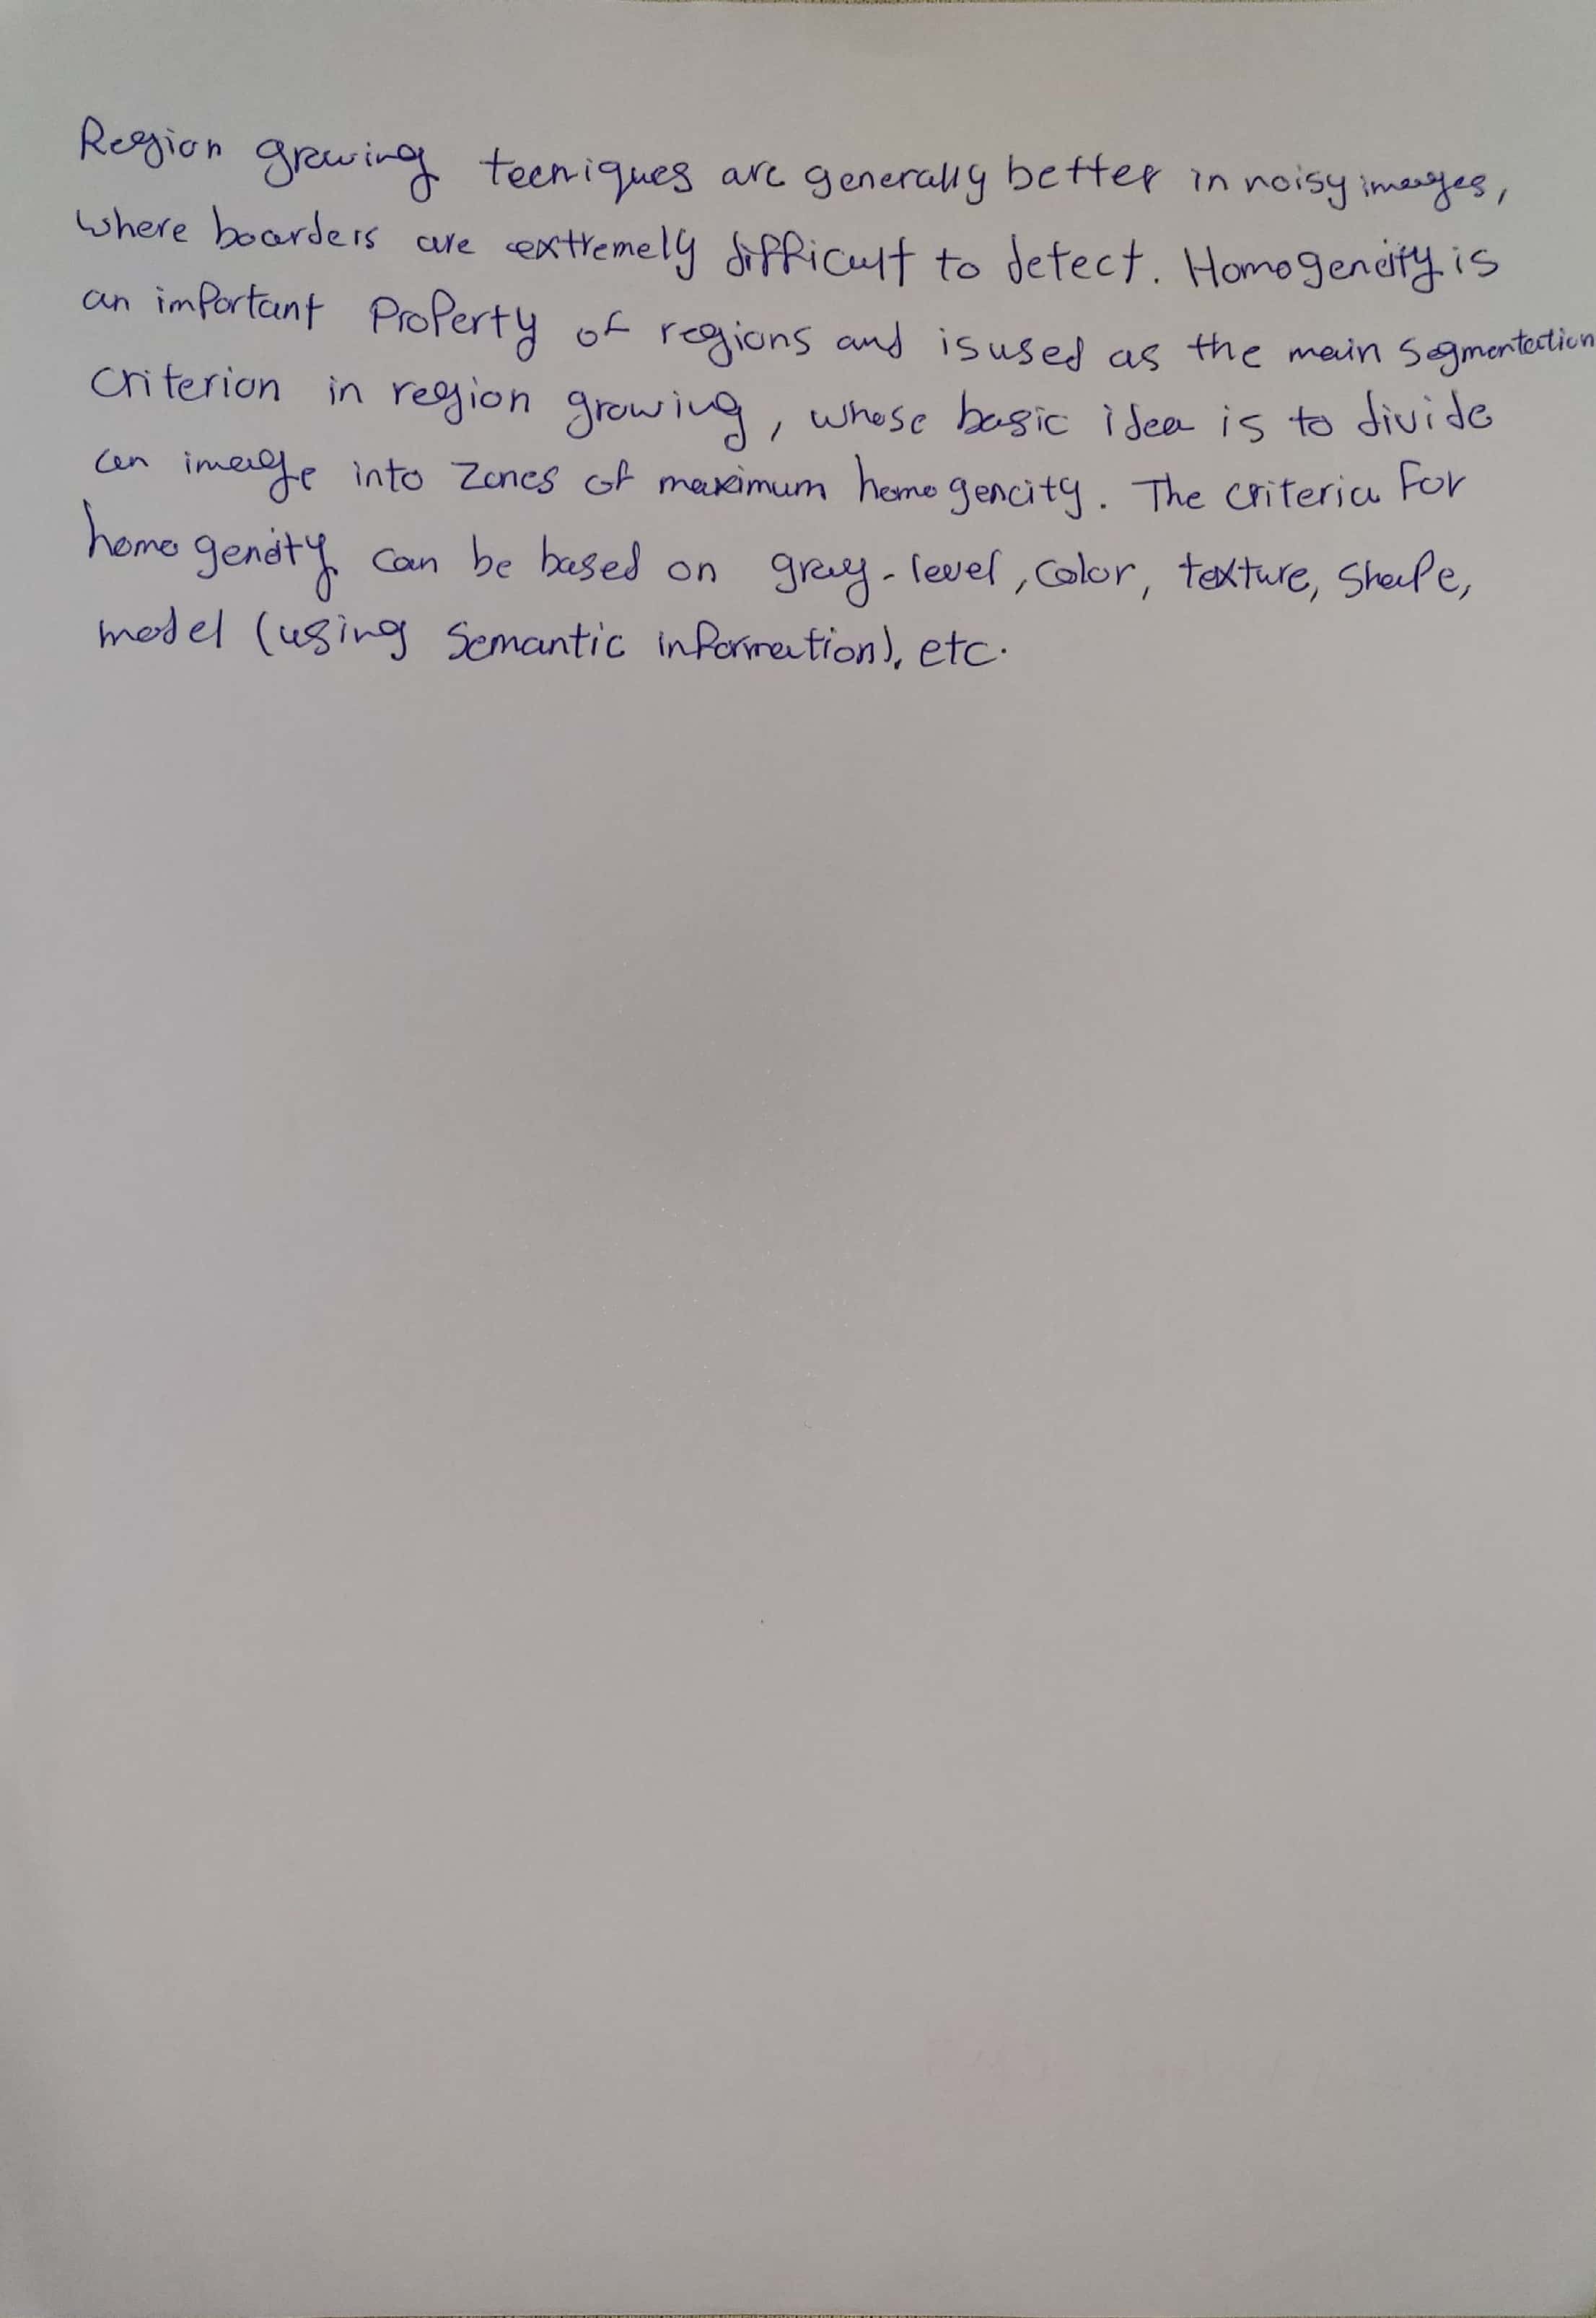 Region growing tecniques are generally better in noisy images,
where boarders are extremely difficult to detect. Homogeneity is
an important Property of regions and is used as the main segmentation
criterion in region growing, whose basic idea is to divide
an image into Zones of maximum homogeneity. The criteria For
homogeneity can be based on gray-level, color, texture, shape,
model (using semantic information), etc.